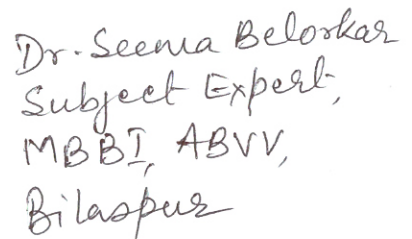 Dr. Seema Belorkar
Subject Expert,
MBBI, ABVV,
Bilaspur